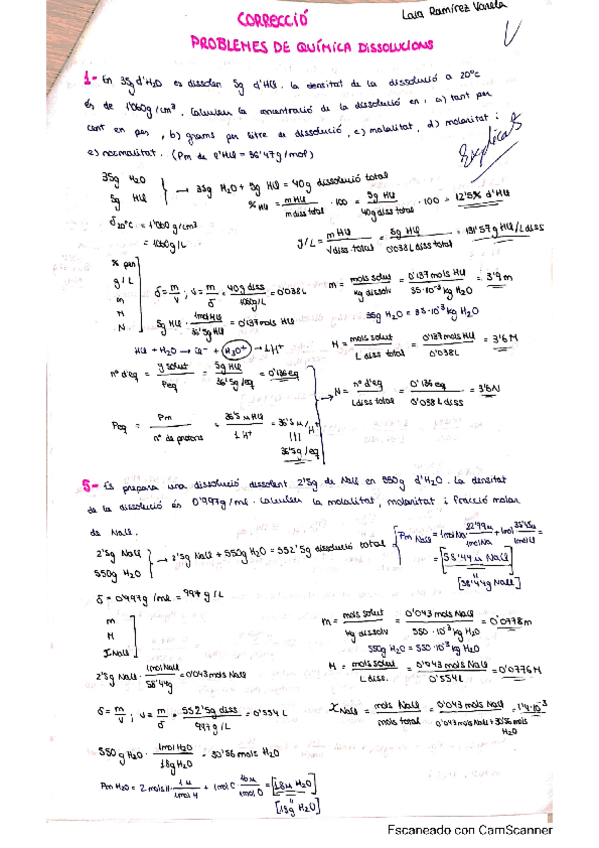 CORRECCIÓ
Laia Ramírez Varela
PROBLEMES DE QUÍMICA DISSOLUCIONS
1- En 35g d'H2O es dissolen 5g d'HCl. La densitat de la dissolució a 20ºC
és de 1'060g/cm³. Calculeu la concentració de la dissolució en: a) tant per
cent en pes, b) grams per litre de dissolució, c) molalitat, d) molaritat i
e) normalitat. (Pm de l'HCl = 36'47g/mol)
Explicat
35g H2O
5g HCl
→ 35g H2O + 5g HCl = 40g dissolució total
% HCl = m HCl / m diss total · 100 = 5g HCl / 40g diss total · 100 = 12'5% d'HCl
δ 20ºC = 1'060 g/cm³
= 1060g/L
g/L = m HCl / V diss total = 5g HCl / 0'038L diss total = 131'57g HCl/L diss
% pes
g/L
m
M
N
δ = m/V ; V = m/δ = 40g diss / 1060g/L = 0'038L
m = mols solut / kg dissolv = 0'137 mols HCl / 35·10⁻³ kg H2O = 3'9m
35g H2O = 35·10⁻³ kg H2O
5g HCl · 1mol HCl / 36'5g HCl = 0'137 mols HCl
M = mols solut / L diss total = 0'137 mols HCl / 0'038L = 3'6M
HCl + H2O → Cl⁻ + H3O⁺ → 1H⁺
nº d'eq = g solut / Peq = 5g HCl / 36'5g/eq = 0'136eq
N = nº d'eq / L diss total = 0'136 eq / 0'038L diss = 3'6N
Peq = Pm / nº de protons = 36'5 u HCl / 1H⁺ = 36'5 u/H⁺
36'5g/eq
5- Es prepara una dissolució dissolent 2'5g de NaCl en 550g d'H2O. La densitat
de la dissolució és 0'997g/ml. Calculeu la molalitat, molaritat i fracció molar
de NaCl.
2'5g NaCl
550g H2O
→ 2'5g NaCl + 550g H2O = 552'5g dissolució total
Pm NaCl = 1mol Na · 22'99u / 1mol Na + 1mol Cl · 35'45u / 1mol Cl =
= 58'44 u NaCl
[58'44g NaCl]
δ = 0'997g/ml = 997g/L
m
M
XNaCl
m = mols solut / kg dissolv = 0'043 mols NaCl / 550·10⁻³ kg H2O = 0'0778m
550g H2O = 550·10⁻³ kg H2O
2'5g NaCl · 1mol NaCl / 58'44g = 0'043 mols NaCl
M = mols solut / L diss. = 0'043 mols NaCl / 0'554L = 0'0776M
δ = m/V ; V = m/δ = 552'5g diss / 997g/L = 0'554L
XNaCl = mols NaCl / mols total = 0'043 mols NaCl / 0'043 mols NaCl + 30'56 mols H2O = 1'4·10⁻³
550g H2O · 1mol H2O / 18g H2O = 30'56 mols H2O
Pm H2O = 2 mols H · 1u / 1mol H + 1mol O · 16u / 1mol O = [18u H2O]
[18g H2O]
Escaneado con CamScanner